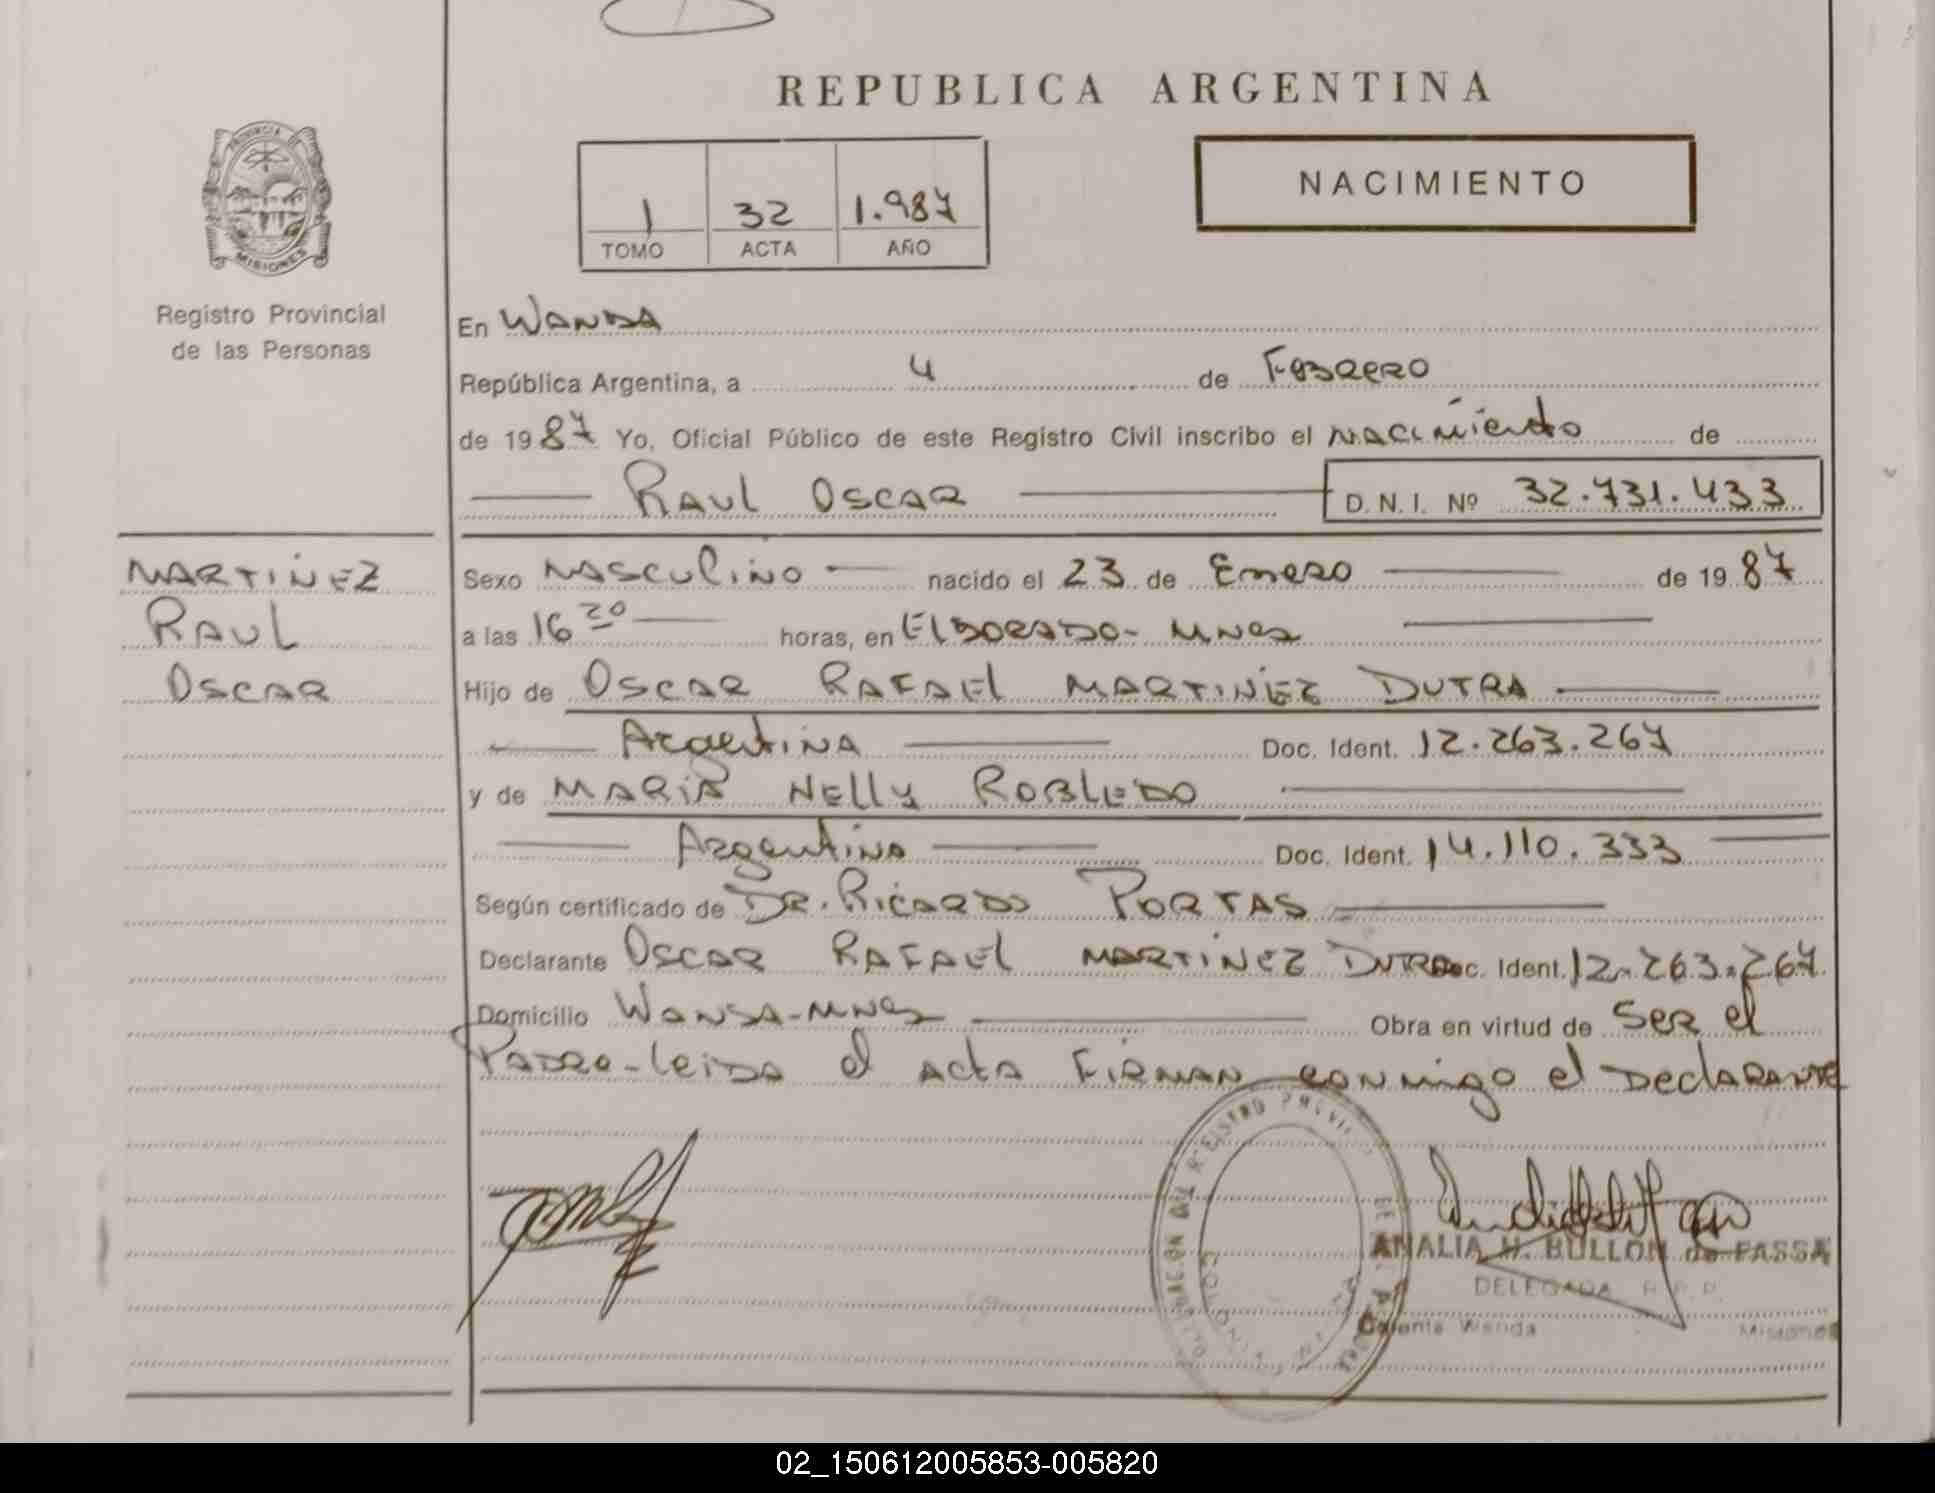 REPUBLICA ARGENTINA
PROVINCIA DE
MISIONES
Registro Provincial
de las Personas
1 32 1.987
TOMO ACTA AÑO
NACIMIENTO
En WANDA
República Argentina, a 4 de Febrero
de 1987 Yo, Oficial Público de este Registro Civil inscribo el nacimiento de
RAUL OSCAR D.N.I. Nº 32.731.433
MARTINEZ
RAUL
OSCAR
Sexo masculino nacido el 23 de Enero de 1987
a las 16 horas, en ELDORADO - Mnes
Hijo de OSCAR RAFAEL MARTINEZ DUTRA
Argentina Doc. Ident. 12.263.267
y de MARIA NELLY ROBLEDO
Argentina Doc. Ident. 14.110.333
Según certificado de DR. RICARDO PORTAS
Declarante OSCAR RAFAEL MARTINEZ DUTRA Doc. Ident. 12.263.267
Domicilio WANDA - Mnes Obra en virtud de ser el
PADRE - leida el acta FIRMAN conmigo el DECLARANTE
ANALIA H. BULLON de FASSA
DELEGADA R.P.P.
Colonia Wanda Misiones
02_150612005853-005820